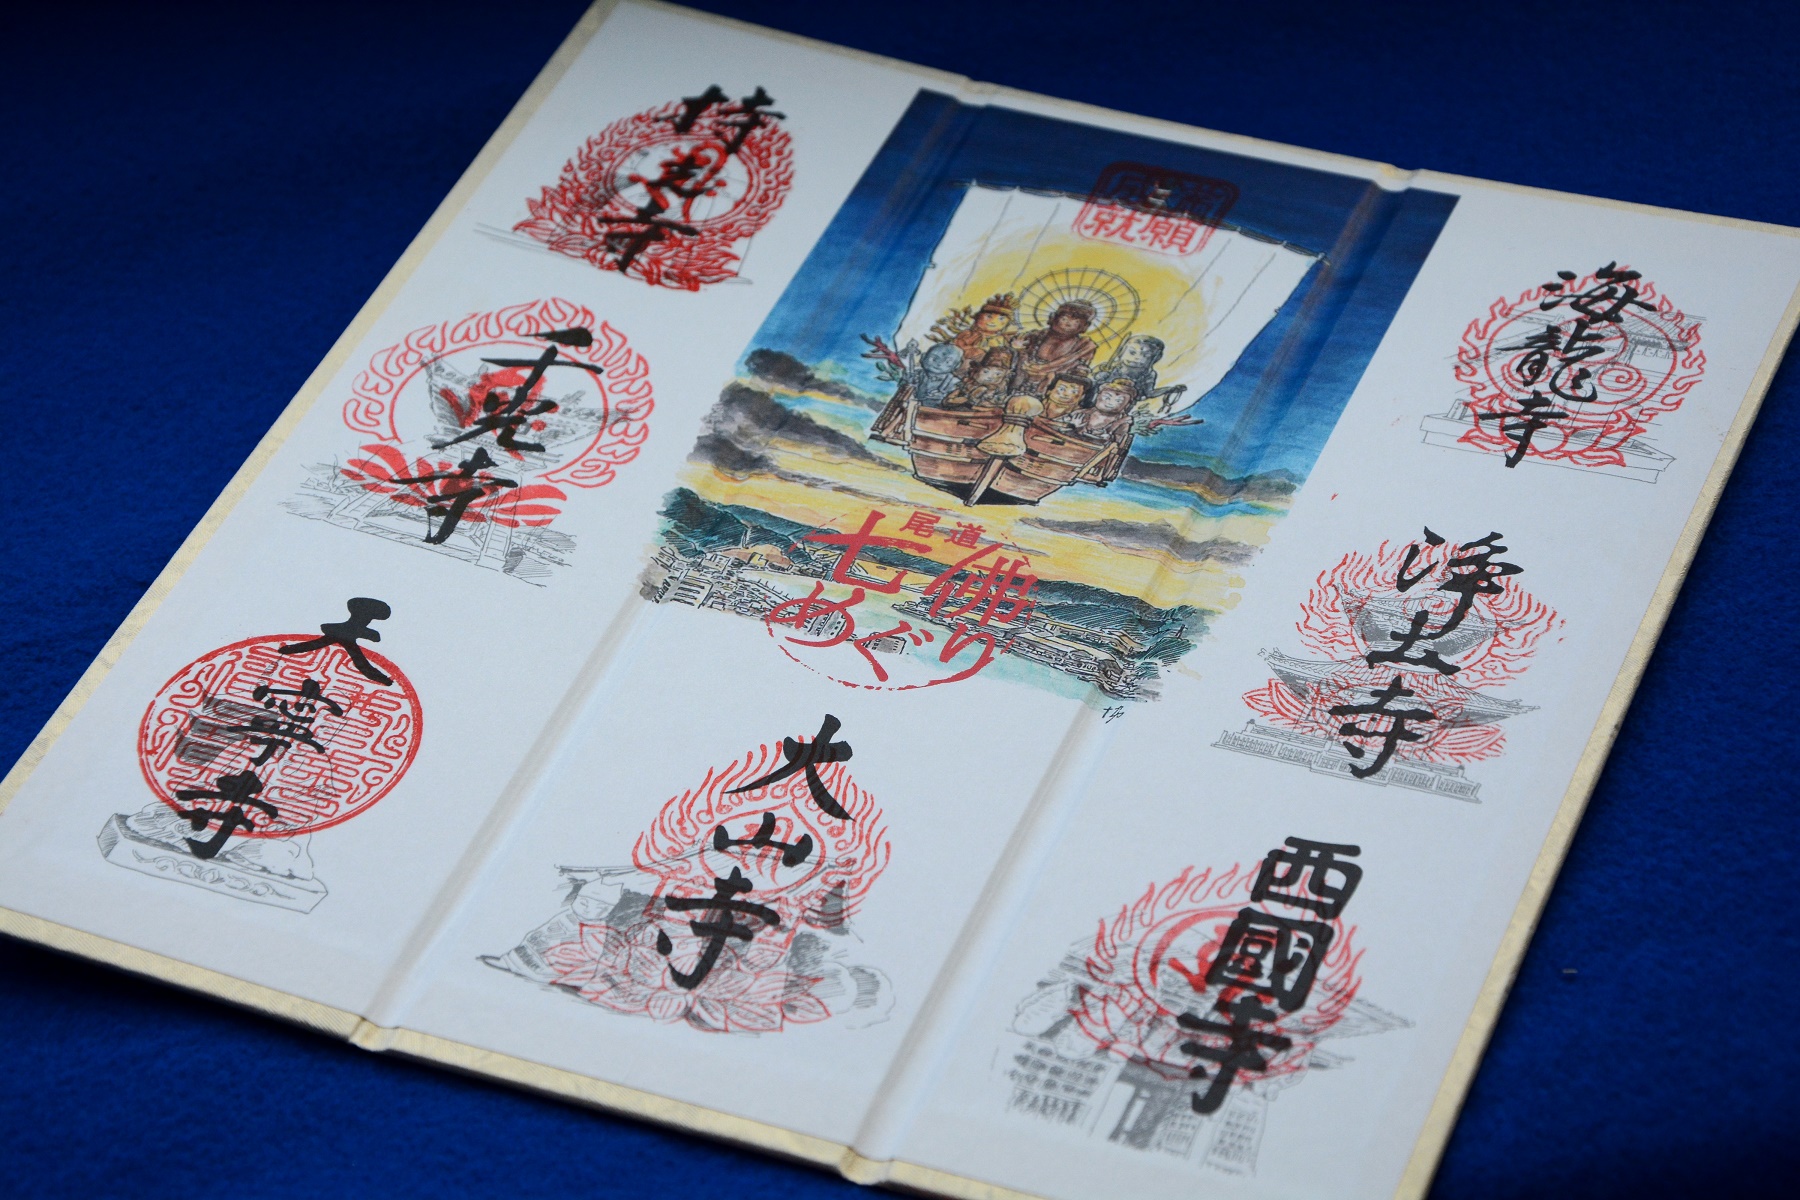 満願
成就
尾道
七佛
めぐり
持光寺
千光寺
天寧寺
大山寺
西國寺
浄土寺
海龍寺